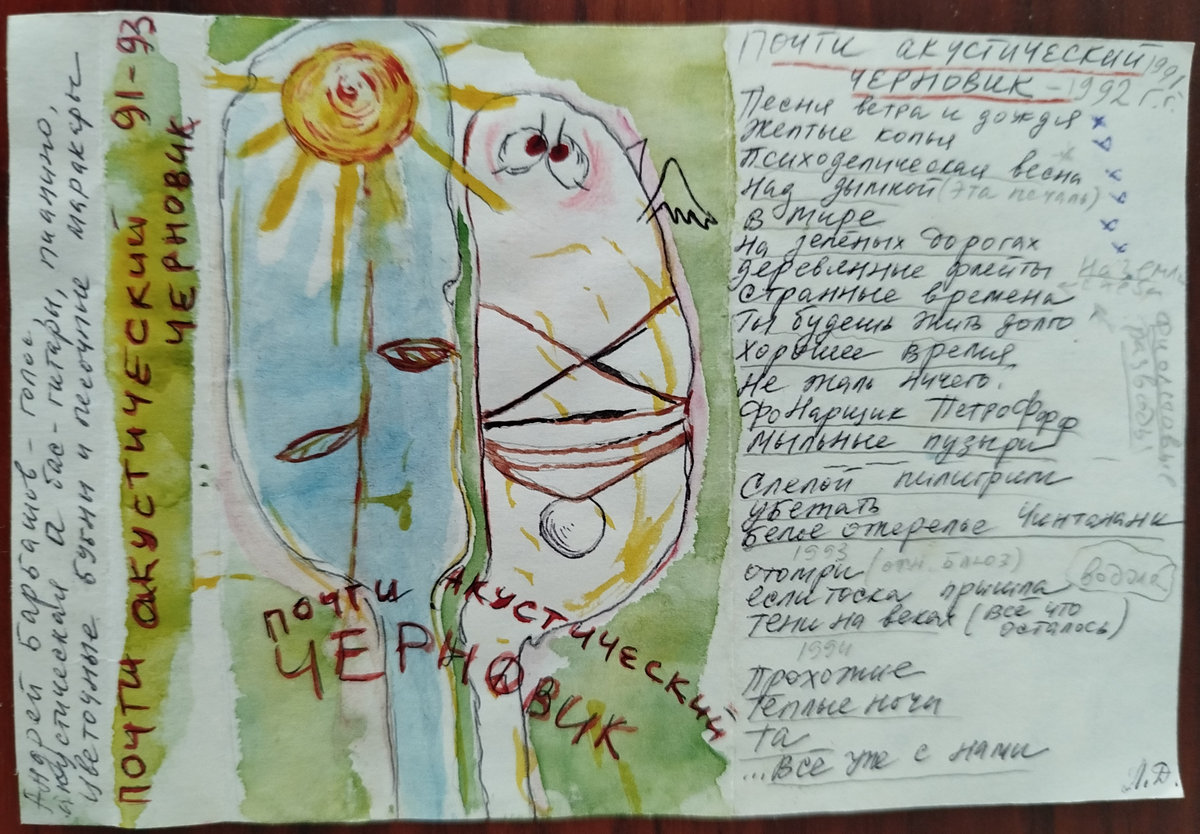 Андрей Барбашов - голос
акустическая и бас-гитары, пианино,
цветочные бубны и песочные маракасы
ПОЧТИ АКУСТИЧЕСКИЙ 91-93
ЧЕРНОВИК
ПОЧТИ АКУСТИЧЕСКИЙ
ЧЕРНОВИК
ПОЧТИ АКУСТИЧЕСКИЙ 1991
ЧЕРНОВИК - 1992 г.г.
Песня ветра и дождя
Желтые копья
Психоделическая весна
Над дымкой (эта печаль)
В мире
На зелёных дорогах
деревянные флейты
На земле
странные времена
Ты будешь жить долго
хорошее время
Не жаль ничего.
ФоНарщик ПетроФффф
Мыльные пузыри
Фиолетовые
разводы
Слепой пилигрим
убежать
Белое ожерелье Чинтамани
1993
отомри (отн. блюз)
если тоска пришла
тени на веках (все что
осталось)
1994
Прохожие
Теплые ночи
Та
...Всё уже с нами
Л.Д.